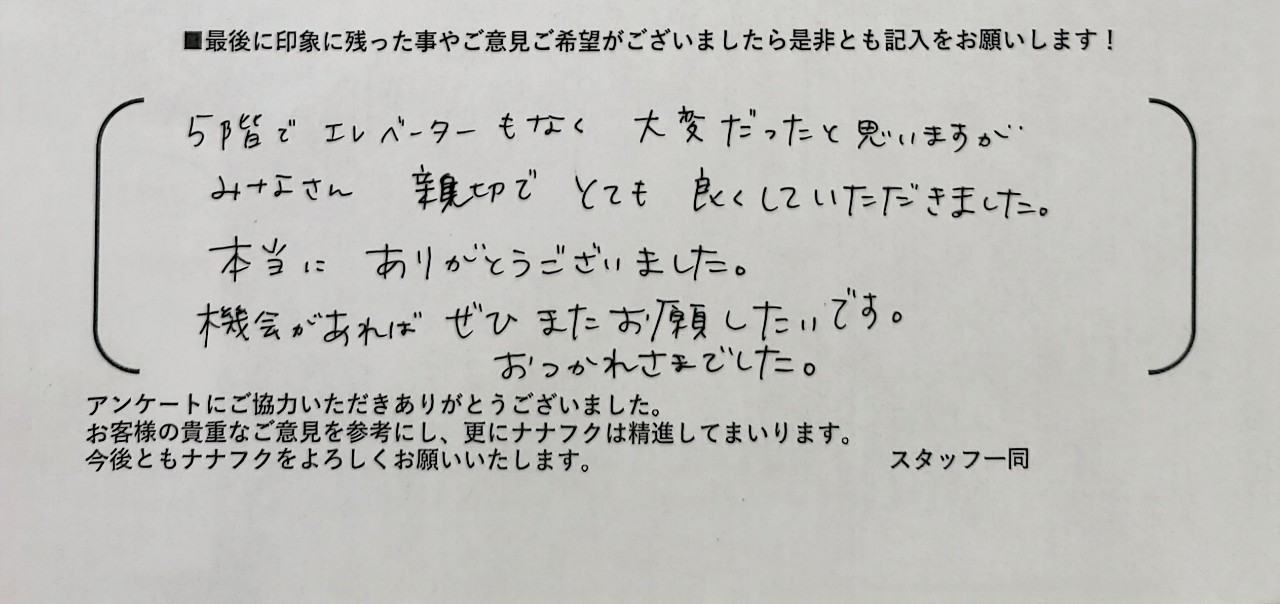 ■最後に印象に残った事やご意見ご希望がございましたら是非とも記入をお願いします！
5階で エレベーターもなく 大変だったと思いますが
みなさん 親切で とても 良くしていただきました。
本当に ありがとうございました。
機会があれば ぜひ またお願いしたいです。
おつかれさまでした。
アンケートにご協力いただきありがとうございました。
お客様の貴重なご意見を参考にし、更にナナフクは精進してまいります。
今後ともナナフクをよろしくお願いいたします。 スタッフ一同